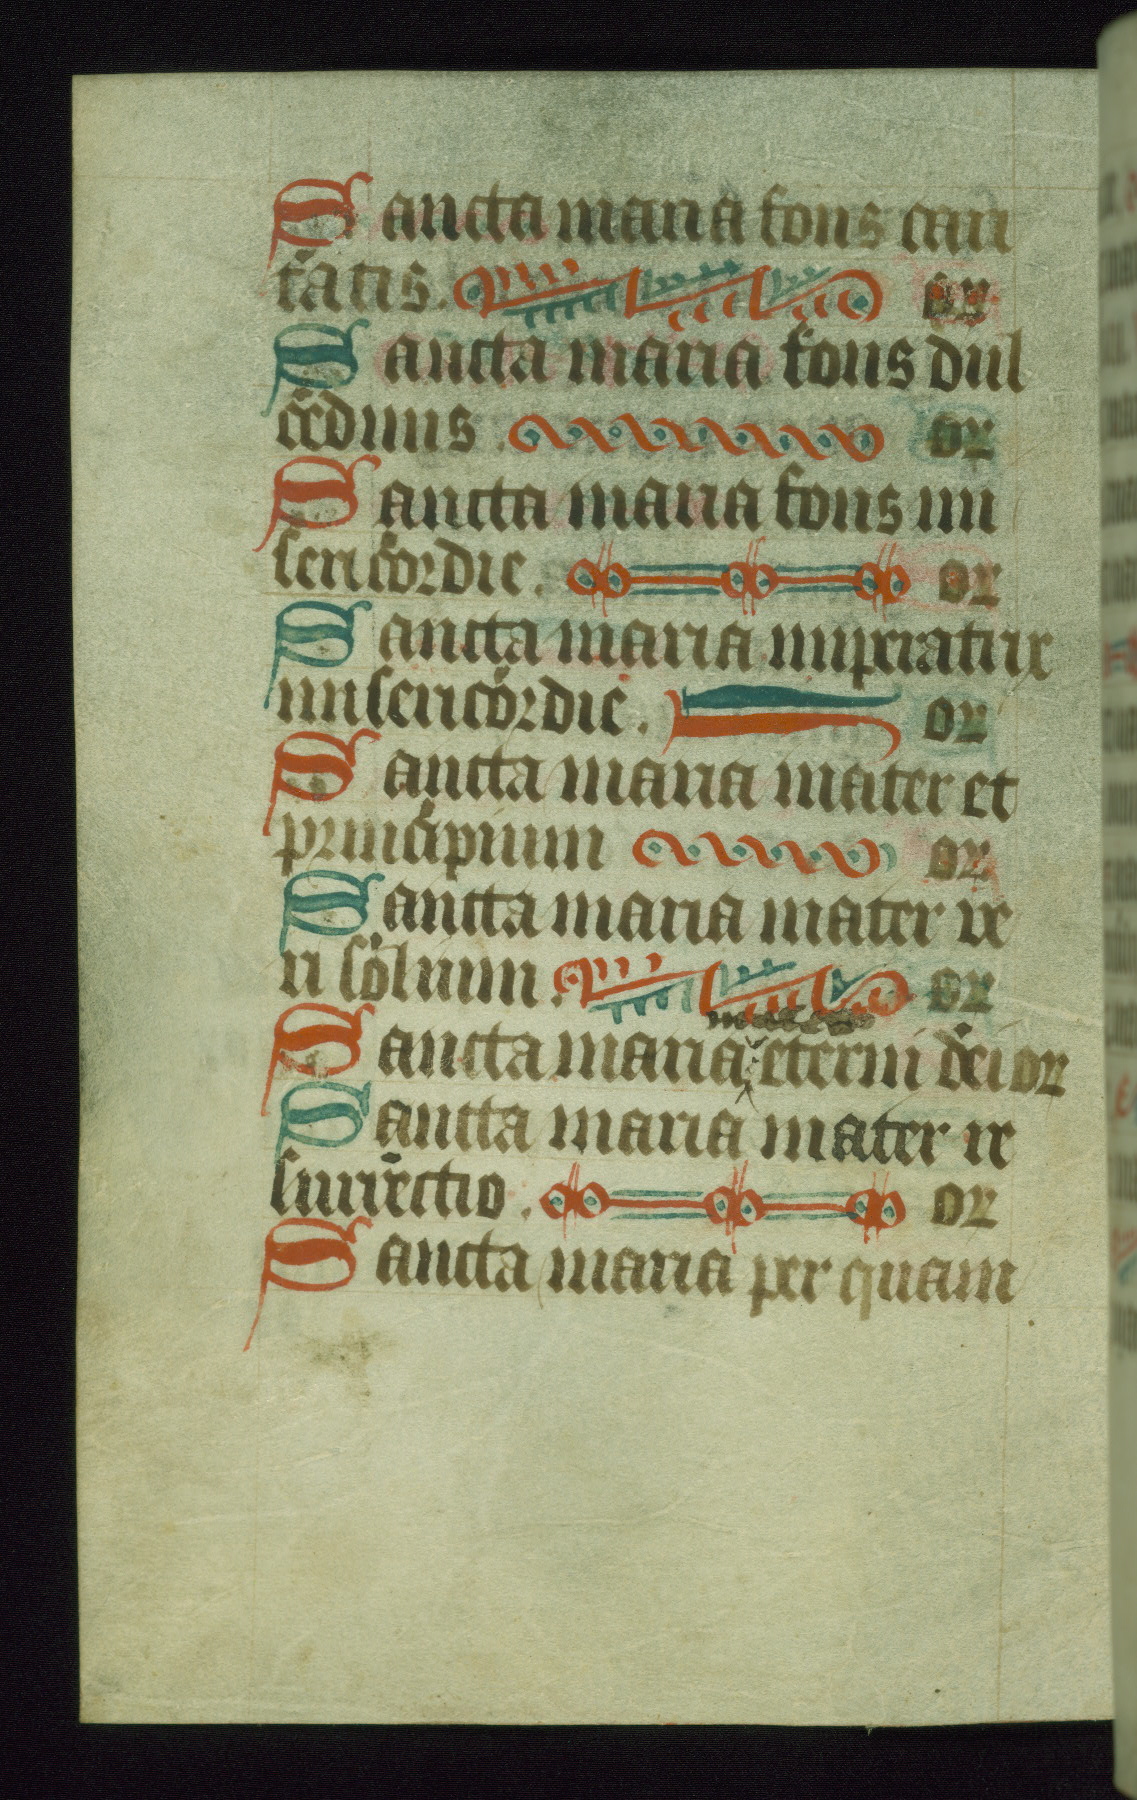 Sancta maria fons cari
tatis. or
Sancta maria fons dul
cedinis . or
Sancta maria fons mi
sericordie . or
Sancta maria imperatrix
misericordie . or
Sancta maria mater et
principium or
Sancta maria mater ve
ri solium . or
mater
Sancta maria eterni dei or
Sancta maria mater re
surrectio . or
Sancta maria per quam